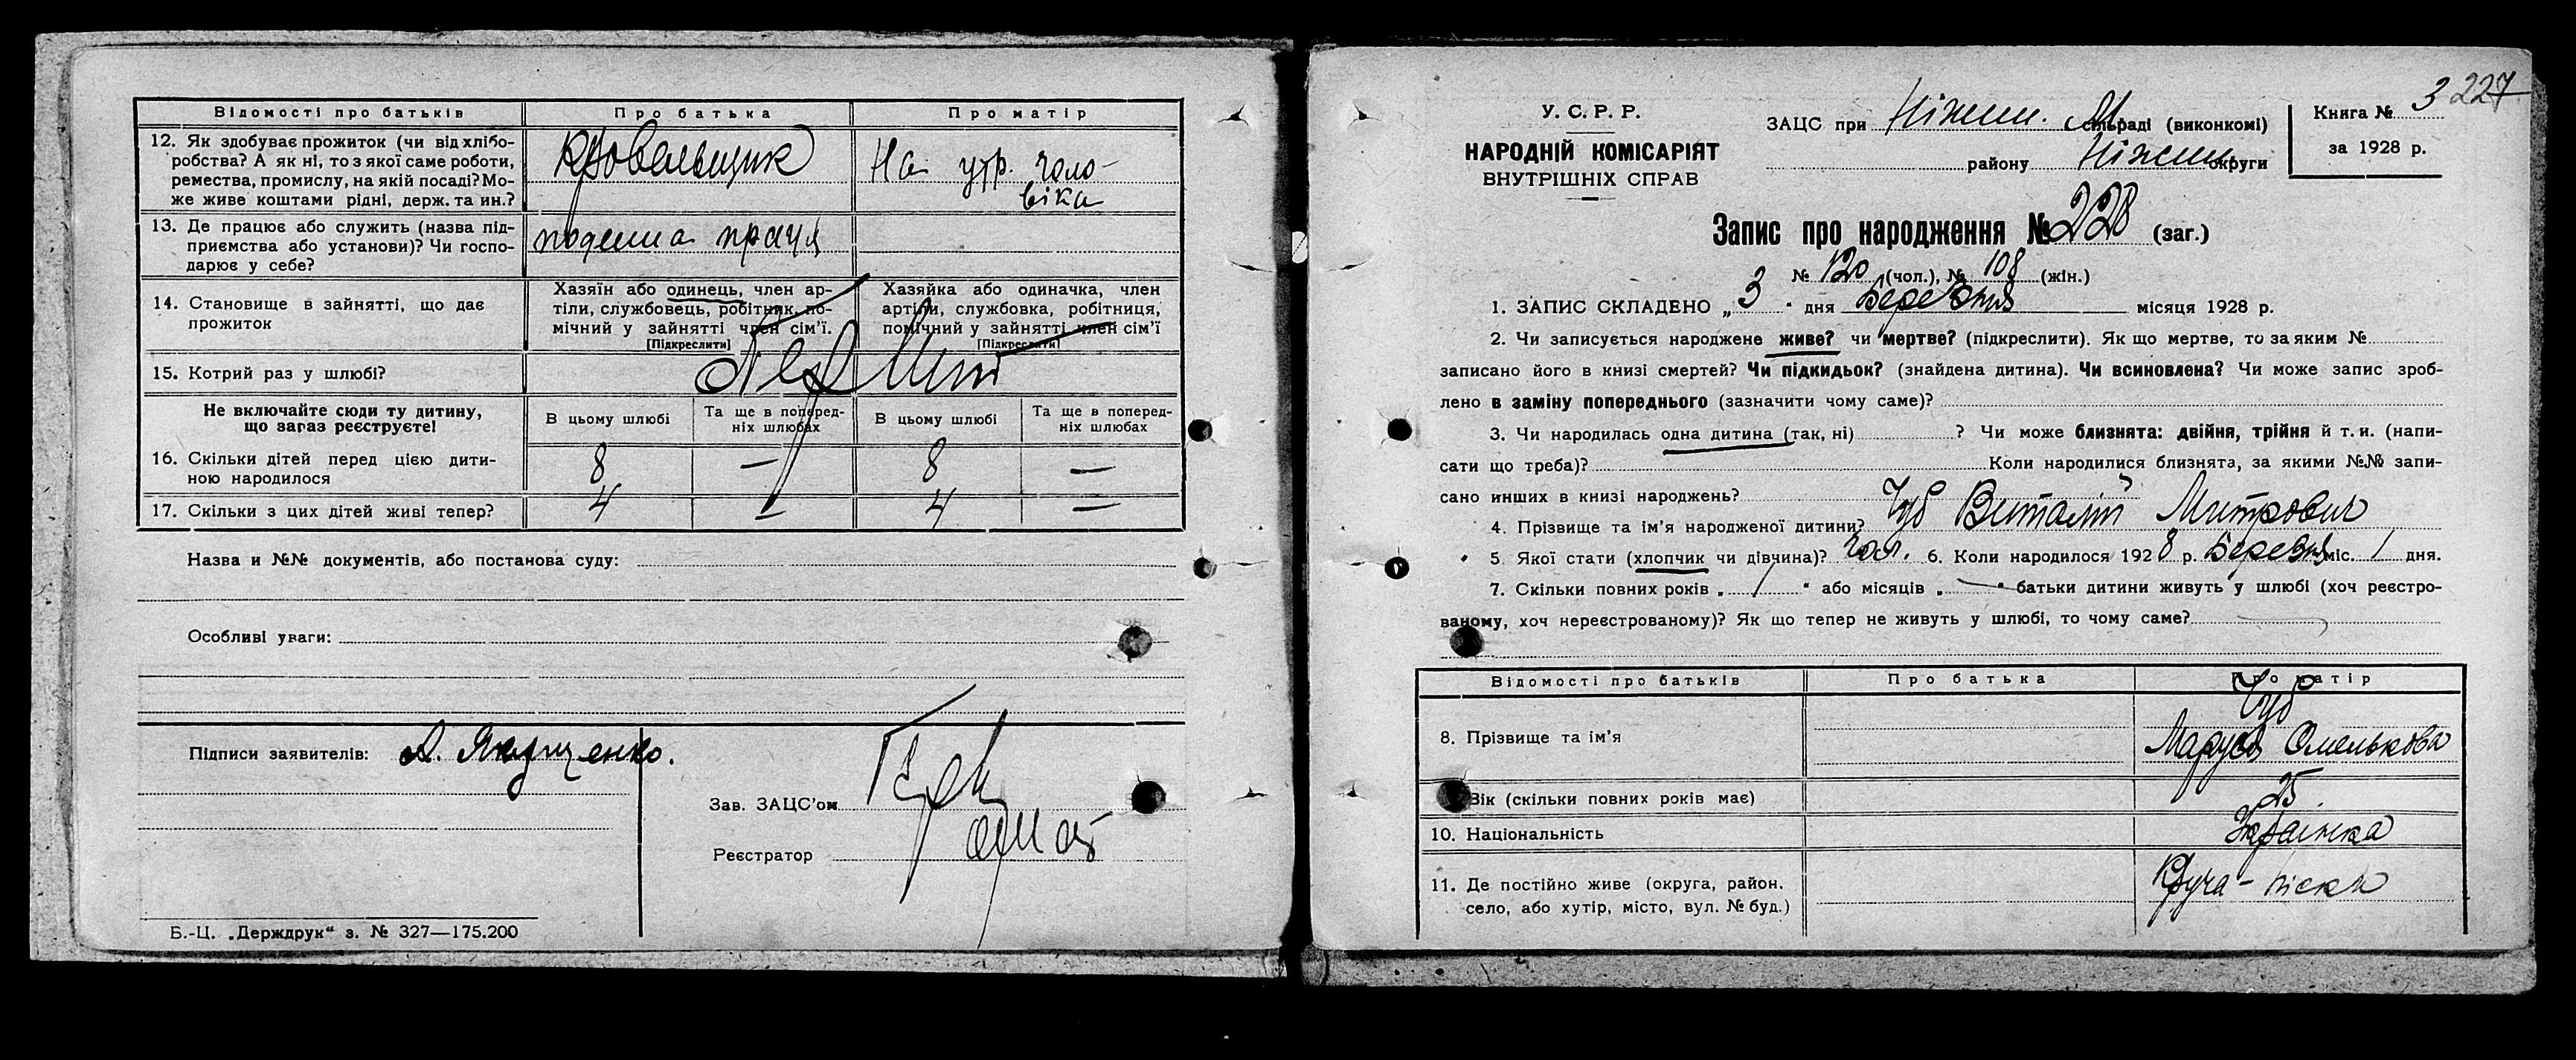 Відомості про батьків Про батька Про матір
12. Як здобуває прожиток (чи від хлібо-
робства? А як ні, то з якої саме роботи,
ремества, промислу, на якій посаді? Мо-
же живе коштами рідні, держ. та ин.?
Кровельщик
На утр. чоло-
віка
13. Де працює або служить (назва під-
приємства або установи)? Чи госпо-
дарює у себе?
поденна праця
14. Становище в зайнятті, що дає
прожиток
Хазяїн або одинець, член ар-
тіли, службовець, робітник, по-
мічний у зайнятті член сім'ї.
[Підкреслити]
Хазяйка або одиначка, член
артіли, службовка, робітниця,
помічний у зайнятті член сім'ї
[Підкреслити]
15. Котрий раз у шлюбі?
Не включайте сюди ту дитину,
що зараз реєструєте!
В цьому шлюбі
Та ще в поперед-
ніх шлюбах
В цьому шлюбі
Та ще в поперед-
ніх шлюбах
16. Скільки дітей перед цією дити-
ною народилося
8 — 8 —
17. Скільки з цих дітей живі тепер? 4 — 4 —
Назва и №№ документів, або постанова суду:
Особливі уваги:
Підписи заявителів: А. Якущенко.
Зав. ЗАЦС'ом
Реєстратор
Б.-Ц. „Держдрук“ з. № 327—175.200
3 227
У. С. Р. Р.
НАРОДНІЙ КОМІСАРІЯТ
ВНУТРІШНІХ СПРАВ
ЗАЦС при Ніжин. М. сільраді (виконкомі)
району Ніжин. округи
Книга №
за 1928 р.
Запис про народження № 228 (заг.)
№ 120 (чол.), № 108 (жін.)
1. ЗАПИС СКЛАДЕНО „ 3 " дня Березня місяця 1928 р.
2. Чи записується народжене живе? чи мертве? (підкреслити). Як що мертве, то за яким №
записано його в книзі смертей? Чи підкидьок? (знайдена дитина). Чи всиновлена? Чи може запис зроб-
лено в заміну попереднього (зазначити чому саме)?
3. Чи народилась одна дитина (так, ні) ? Чи може близнята: двійня, трійня й т. и. (напи-
сати що треба)? Коли народилися близнята, за якими №№ запи-
сано инших в книзі народжень?
4. Прізвище та ім'я народженої дитини? Чуб Виталій Митрович
5 Якої стати (хлопчик чи дівчина)? чол. 6. Коли народилося 192 8 р. Березня міс. 1 дня.
7. Скільки повних років „ 1 " або місяців „ — " батьки дитини живуть у шлюбі (хоч реєстро-
ваному, хоч нереєстрованому)? Як що тепер не живуть у шлюбі, то чому саме?
Відомості про батьків Про батька Про матір
8. Прізвище та ім'я
Чуб
Маруся Омелькова
Вік (скільки повних років має) 25
10. Національність Українка
11. Де постійно живе (округа, район,
село, або хутір, місто, вул. № буд.)
Круча - піски